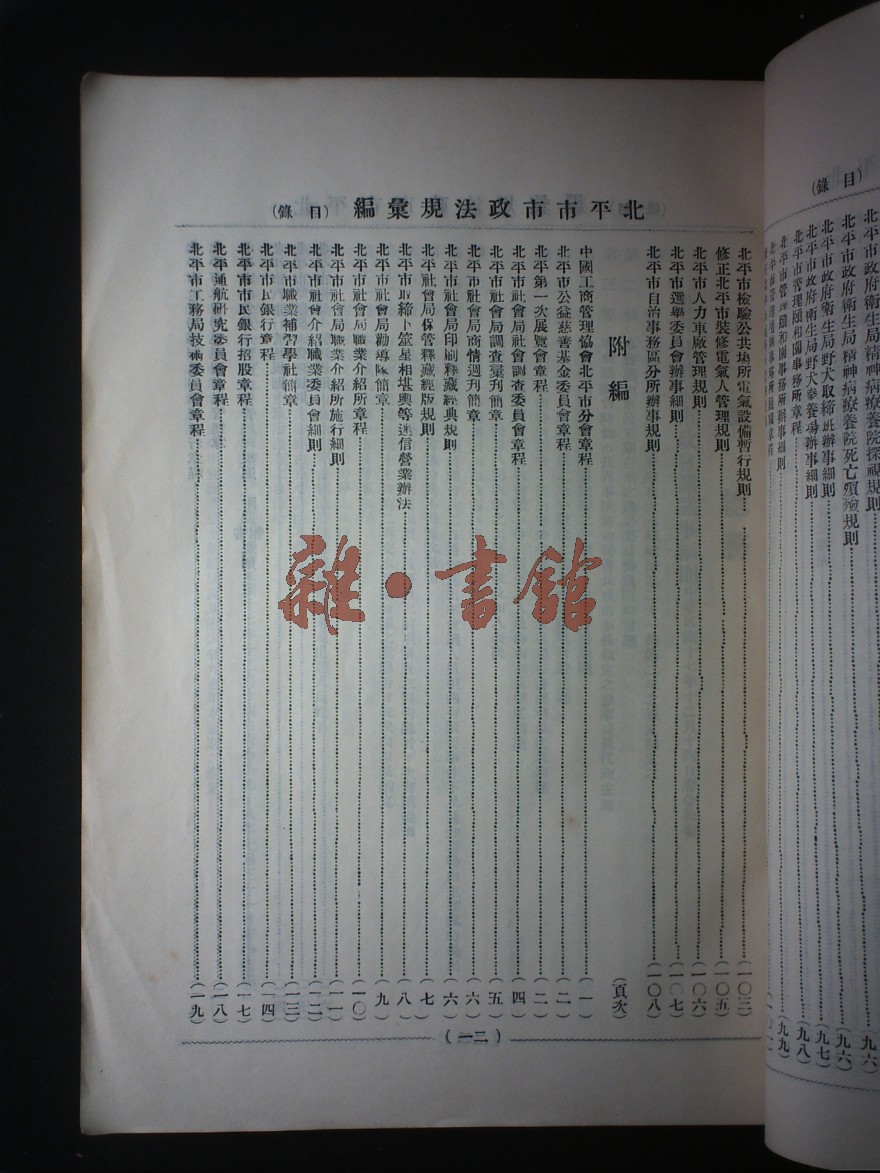 北平市政府衛生局精神病療養院探視規則
北平市政府衛生局精神病療養院死亡殯殮規則
(九六
北平市政府衛生局野犬取締班辦事細則
(九六
北平市政府衛生局野犬豢養場辦事細則
(九七
北平市管理頤和園事務所章程
(九八
北平市管理頤和園事務所辦事細則
(九九
(目錄)
北平市市政法規彙編 (目錄)
北平市檢驗公共場所電氣設備暫行規則(一〇三)
修正北平市裝修電氣人管理規則(一〇五)
北平市人力車廠管理規則(一〇六)
北平市選舉委員會辦事細則(一〇七)
北平市自治事務區分所辦事規則(一〇八)
附編 (頁次)
中國工商管理協會北平市分會章程(一)
北平市公益慈善基金委員會章程(二)
北平第一次展覽會章程(二)
北平市社會局社會調查委員會章程(四)
北平市社會局調查彙刊簡章(五)
北平市社會局商情週刊簡章(六)
北平市社會局印刷釋藏經典規則(六)
北平社會局保管釋藏經版規則(七)
北平市取締卜筮星相堪輿等迷信營業辦法(八)
北平市社會局勸導隊簡章(九)
北平市社會局職業介紹所章程(一〇)
北平市社會局職業介紹所施行細則(一一)
北平市社會介紹職業委員會細則(一二)
北平市職業補習學社簡章(一三)
北平市民銀行章程(一四)
北平市市民銀行招股章程(一七)
北平通航研究委員會章程(一八)
北平市工務局技術委員會章程(一九)
(一二)
雜·書館